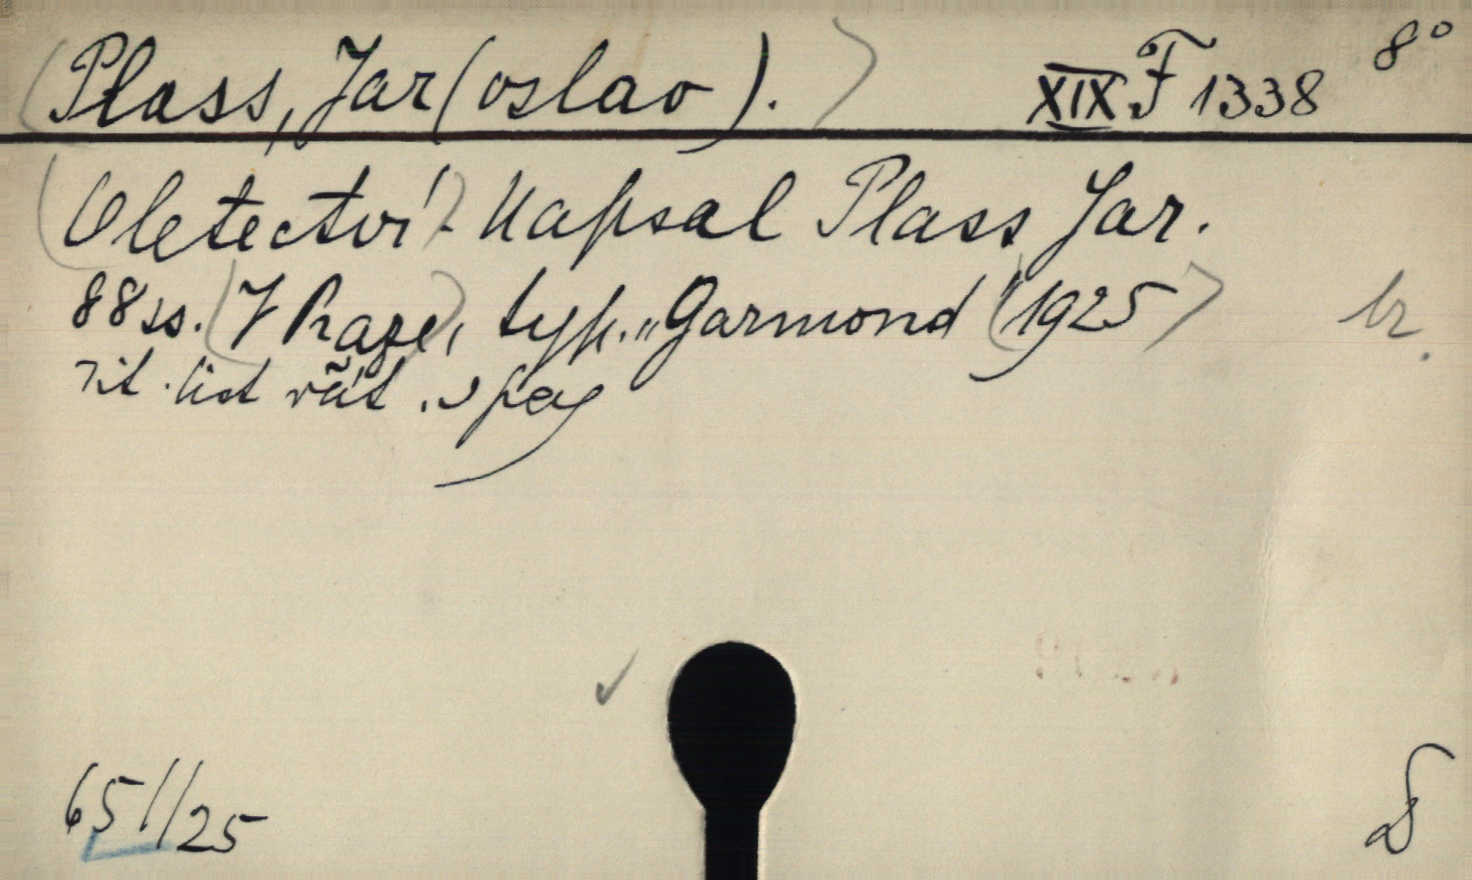 (Plass, Jar(oslav). ) XIX F 1338 8°
(O letectví.) Napsal Plass Jar.
88 ss. (V Praze), typ. „Garmond" (1925) br.
Tit. list váz. v
651/25